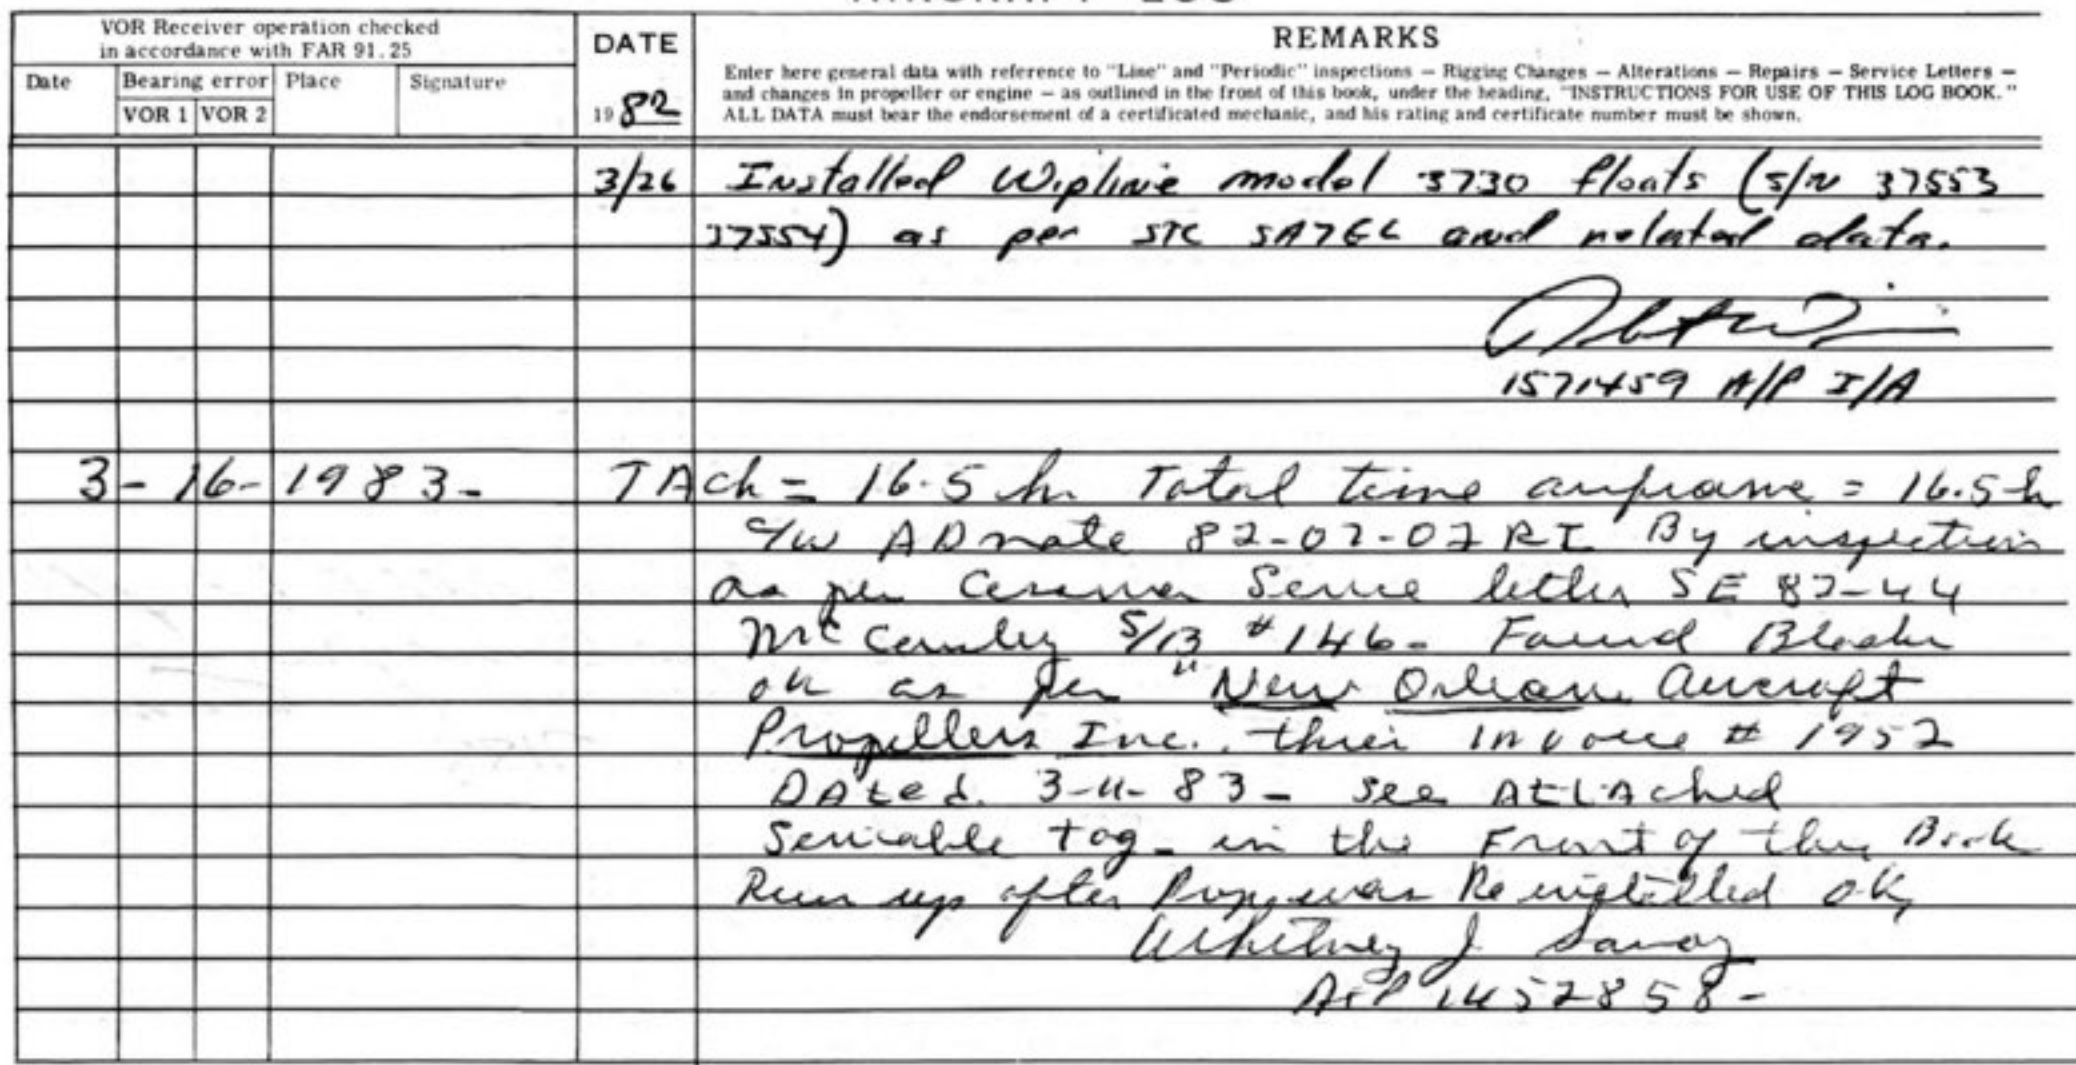 VOR Receiver operation checked
in accordance with FAR 91.25
Date Bearing error Place Signature
VOR 1 VOR 2
DATE
19 82
REMARKS
Enter here general data with reference to "Line" and "Periodic" inspections — Rigging Changes — Alterations — Repairs — Service Letters —
and changes in propeller or engine — as outlined in the front of this book, under the heading, "INSTRUCTIONS FOR USE OF THIS LOG BOOK."
ALL DATA must bear the endorsement of a certificated mechanic, and his rating and certificate number must be shown.
3/26 Installed Wipline model 3730 floats (s/n 37553
37554) as per STC SA7GL and related data.
1571459 A/P I/A
3-16-1983- TACh = 16.5 hr Total time airframe = 16.5 h
c/w AD note 82-07-02 R1 By inspection
as per Cessna Service letter SE 82-44
McCauley S/B #146- Found Blades
ok as per "New Orleans Aircraft
Propellers Inc. thier invoice # 1952
DAted 3-11-83- See Attached
Servicable tag- in the Front of this Book
Run up after Prop was Reinstalled ok,
Whitney J. Savoy
A&P 1452858-